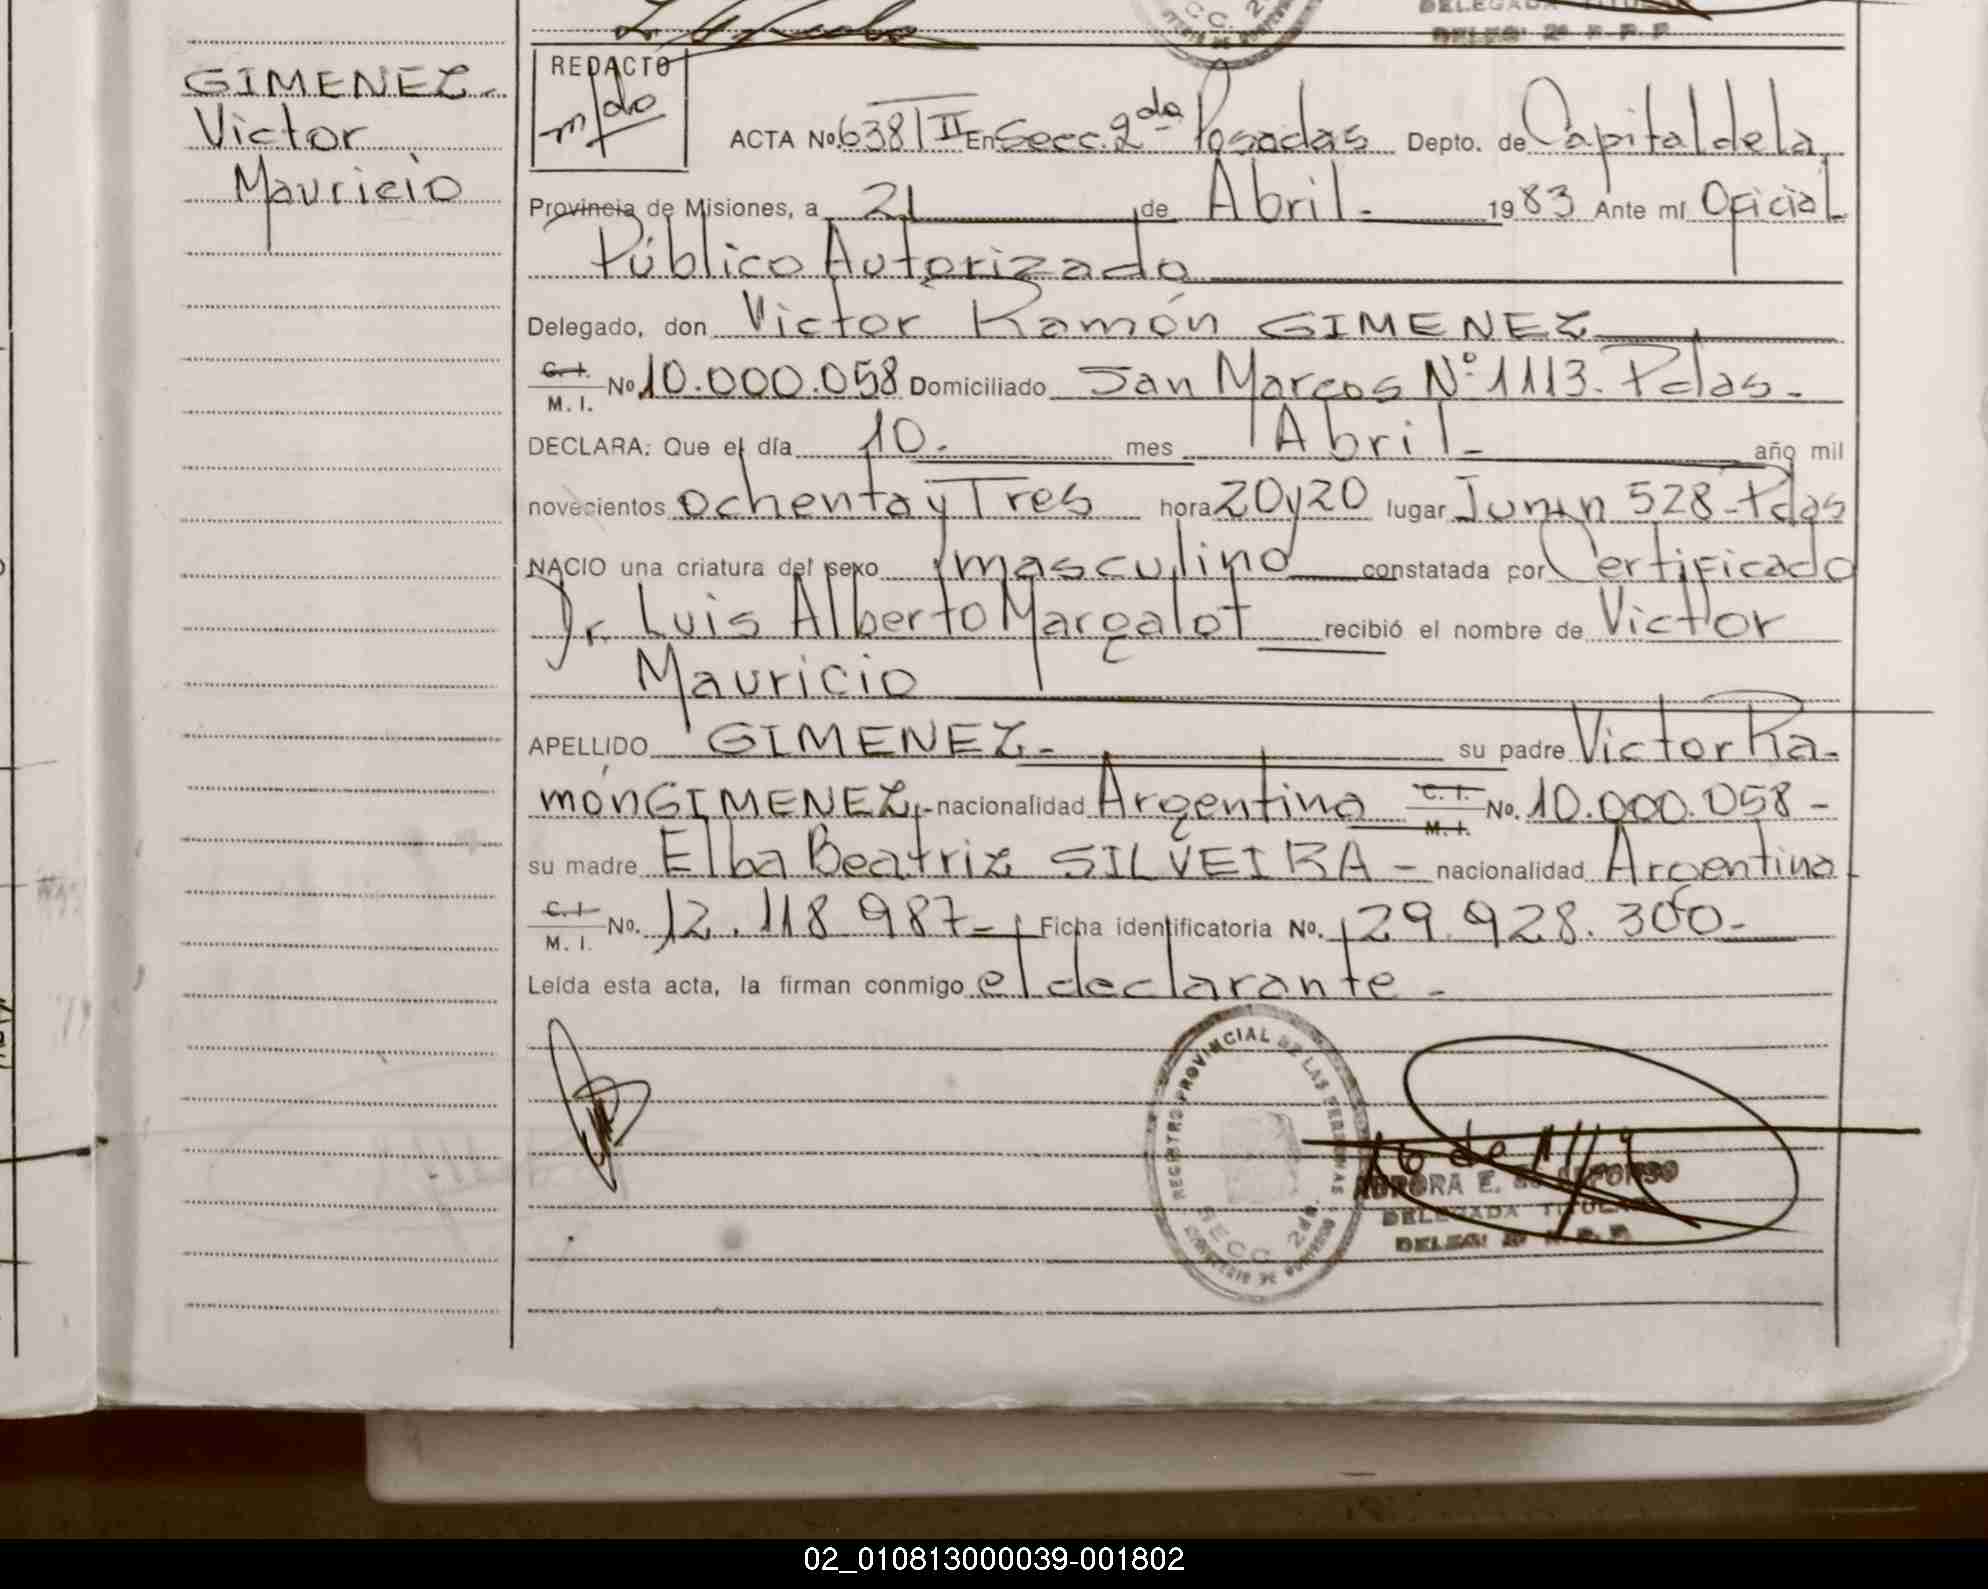 DELEGADA TITULAR
DELEG. 2ª R.P.P.
GIMENEZ-
Victor
Mauricio
REDACTO
ACTA Nº 638/II En Secc. 2da Posadas Depto. de Capital de la
Provincia de Misiones, a 21 de Abril- 1983 Ante mí Oficial
Público Autorizado
Delegado, don Victor Ramón GIMENEZ
C. I.
M. I. Nº 10.000.058 Domiciliado San Marcos Nº 1113. Pdas-
DECLARA: Que el día 10. mes Abril- año mil
novecientos ochenta y Tres hora 20 y 20 lugar Junin 528-Pdas
NACIO una criatura del sexo masculino constatada por Certificado
Dr. Luis Alberto Margalot recibió el nombre de Victor
Mauricio
APELLIDO GIMENEZ- su padre Victor Ra-
món GIMENEZ- nacionalidad Argentina C. I. M. I. No. 10.000.058-
su madre Elba Beatriz SILVEIRA - nacionalidad Argentina
C. I.
M. I. No. 12.118.987- Ficha identificatoria No. 29.928.300-
Leída esta acta, la firman conmigo el declarante-
REGISTRO PROVINCIAL DE LAS PERSONAS
SECC. 2ª
AURORA E.
DELEGADA TITULAR
DELEG. 2ª R.P.P.
02_010813000039-001802